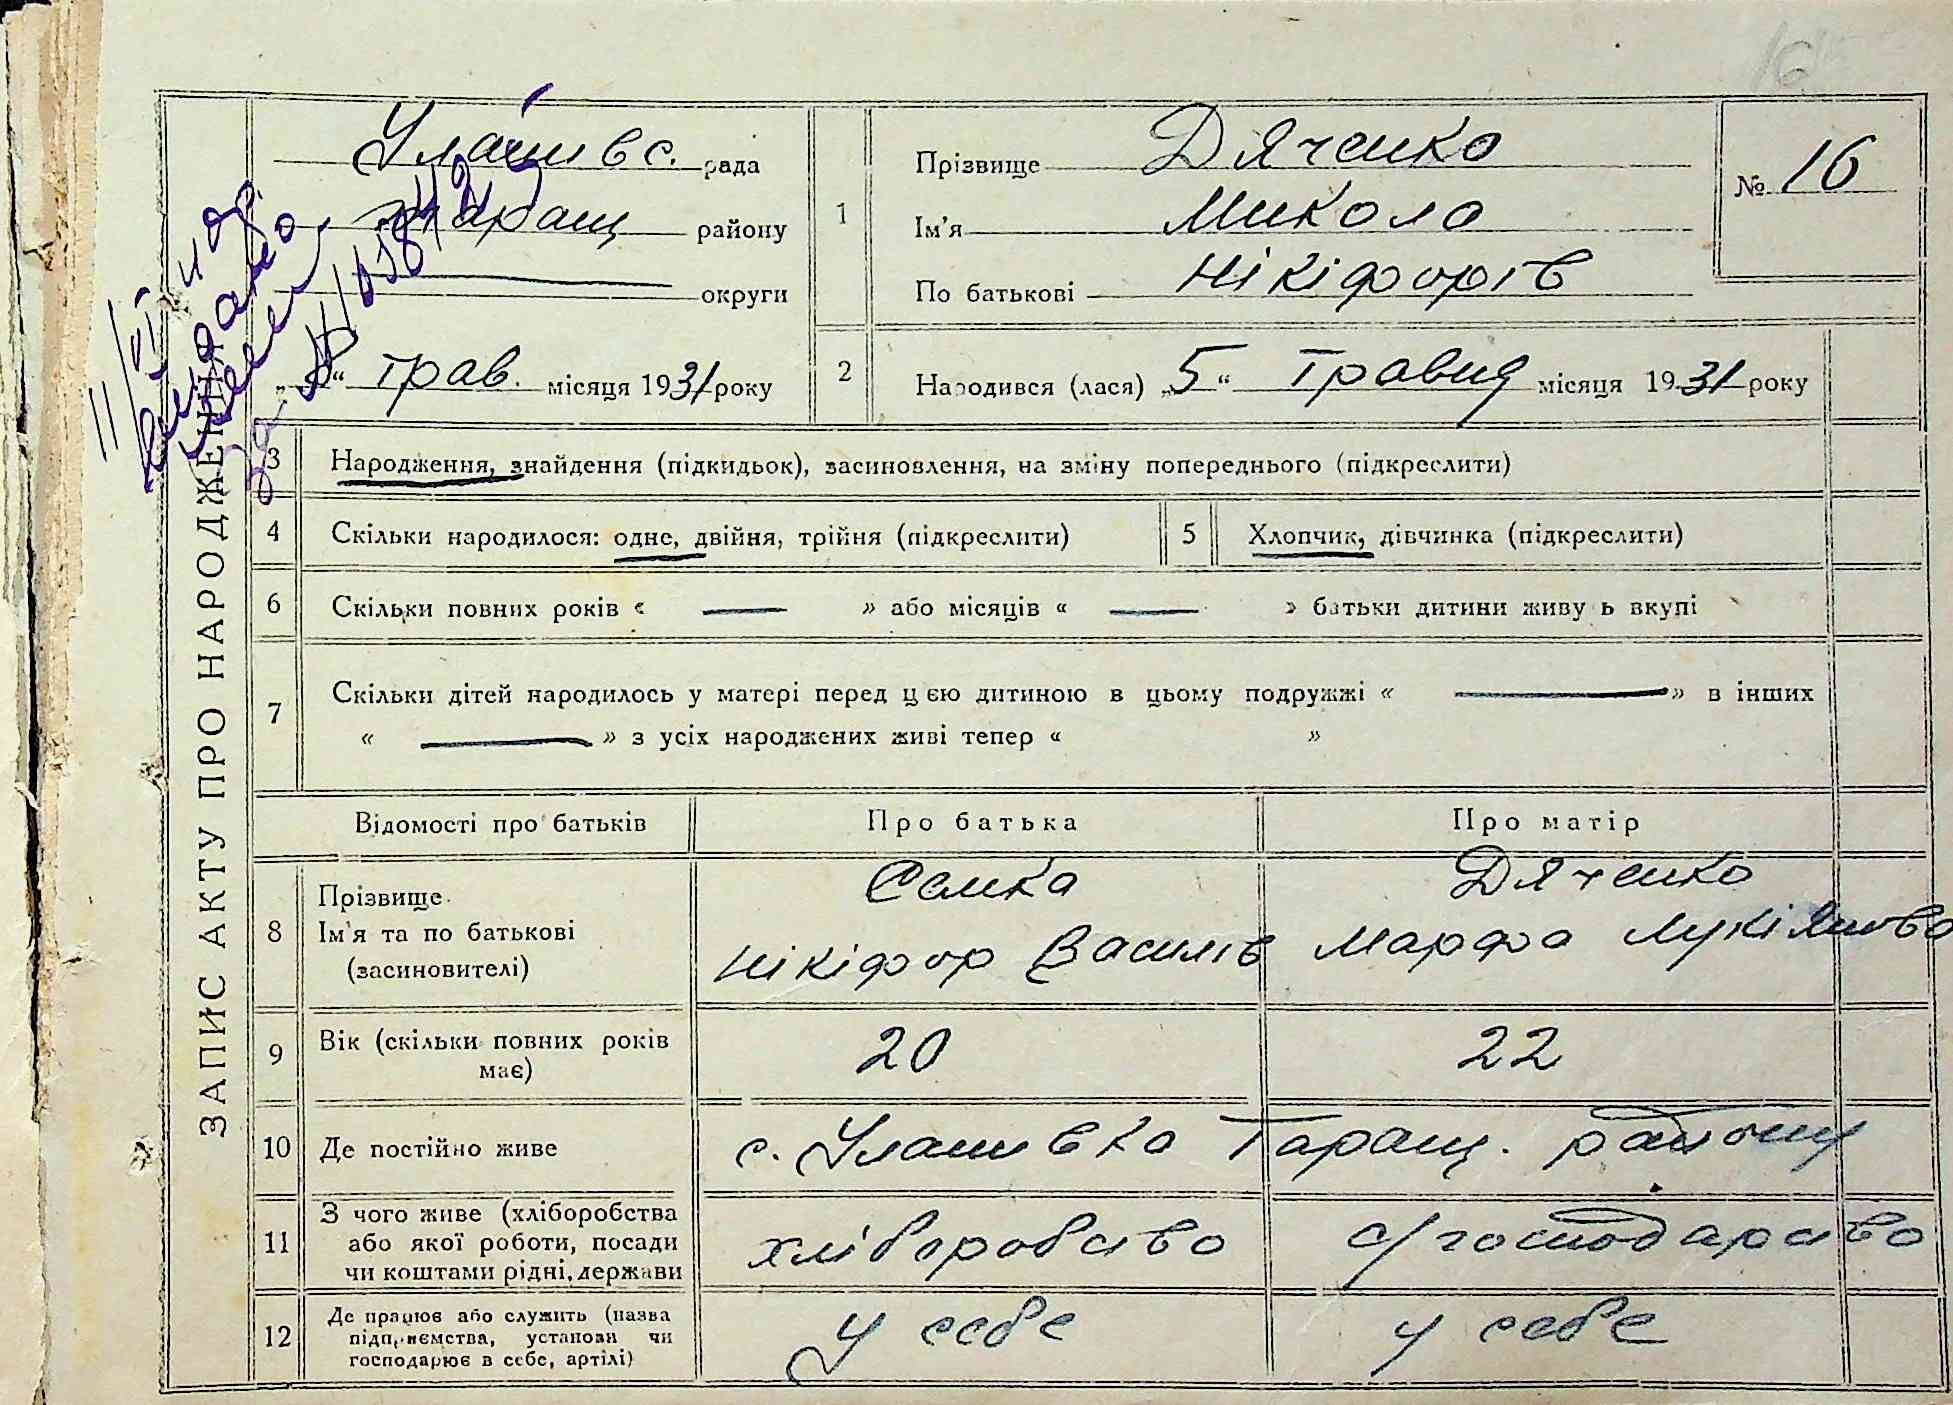 16
ЗАПИС АКТУ ПРО НАРОДЖЕННЯ
Улашівс. рада
Таращ району
округи
„8“ трав. місяця 1931 року
1
Прізвище Дяченко
Ім'я Микола
По батькові Нікіфорів
№ 16
2
Народився (лася) „5“ Травня місяця 1931 року
3 Народження, знайдення (підкидьок), засиновлення, на зміну попереднього (підкреслити)
4 Скільки народилося: одне, двійня, трійня (підкреслити) 5 Хлопчик, дівчинка (підкреслити)
6 Скільки повних років « — » або місяців « — » батьки дитини живу ь вкупі
7 Скільки дітей народилось у матері перед цією дитиною в цьому подружжі « — » в інших
« — » з усіх народжених живі тепер « »
Відомості про батьків Про батька Про матір
8 Прізвище
Ім'я та по батькові
(засиновителі)
Семка
Нікіфор Василів
Дяченко
Марфа Лукіянова
9 Вік (скільки повних років
має)
20 22
10 Де постійно живе с. Улашівка Таращ. району
11 З чого живе (хліборобства
або якої роботи, посади
чи коштами рідні, держави
хліборобство с/господарство
12 Де працює або служить (назва
підприємства, установи чи
господарює в себе, артілі)
у себе у себе